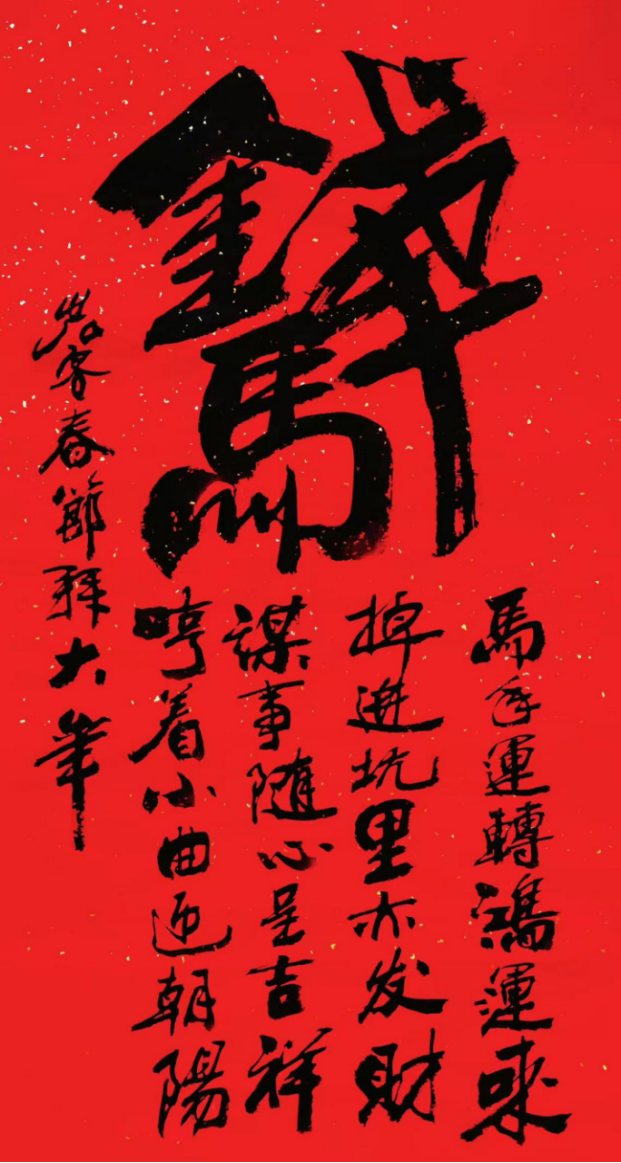 馬年運轉鴻運來
掉進坑里亦发財
謀事随心呈吉祥
哼着小曲迎朝陽
客春節拜大年